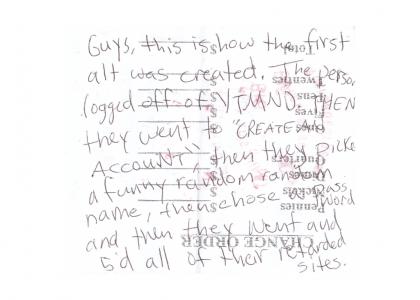 Guys, this is how the first
alt was created. The person
logged off of YTMND. THEN
they went to "CREATE AN
ACCOUNT", then they picke
a funny random random
name, then chose a pass
word
and then they went and
5'd all of their retarded
sites.
Total
Twenties
Tens
Fives
Ones
Quarters
Dimes
Nickels
Pennies
CHANGE ORDER